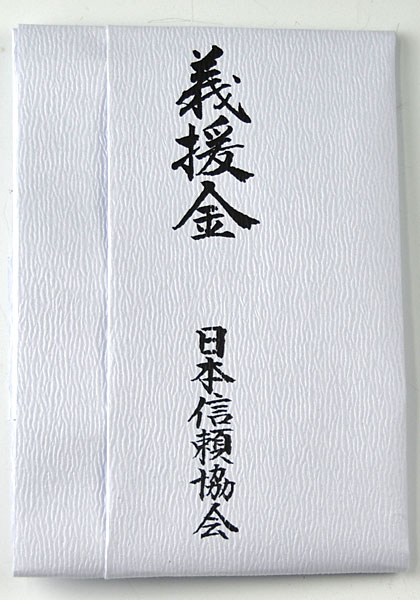 義援金
日本信頼協会